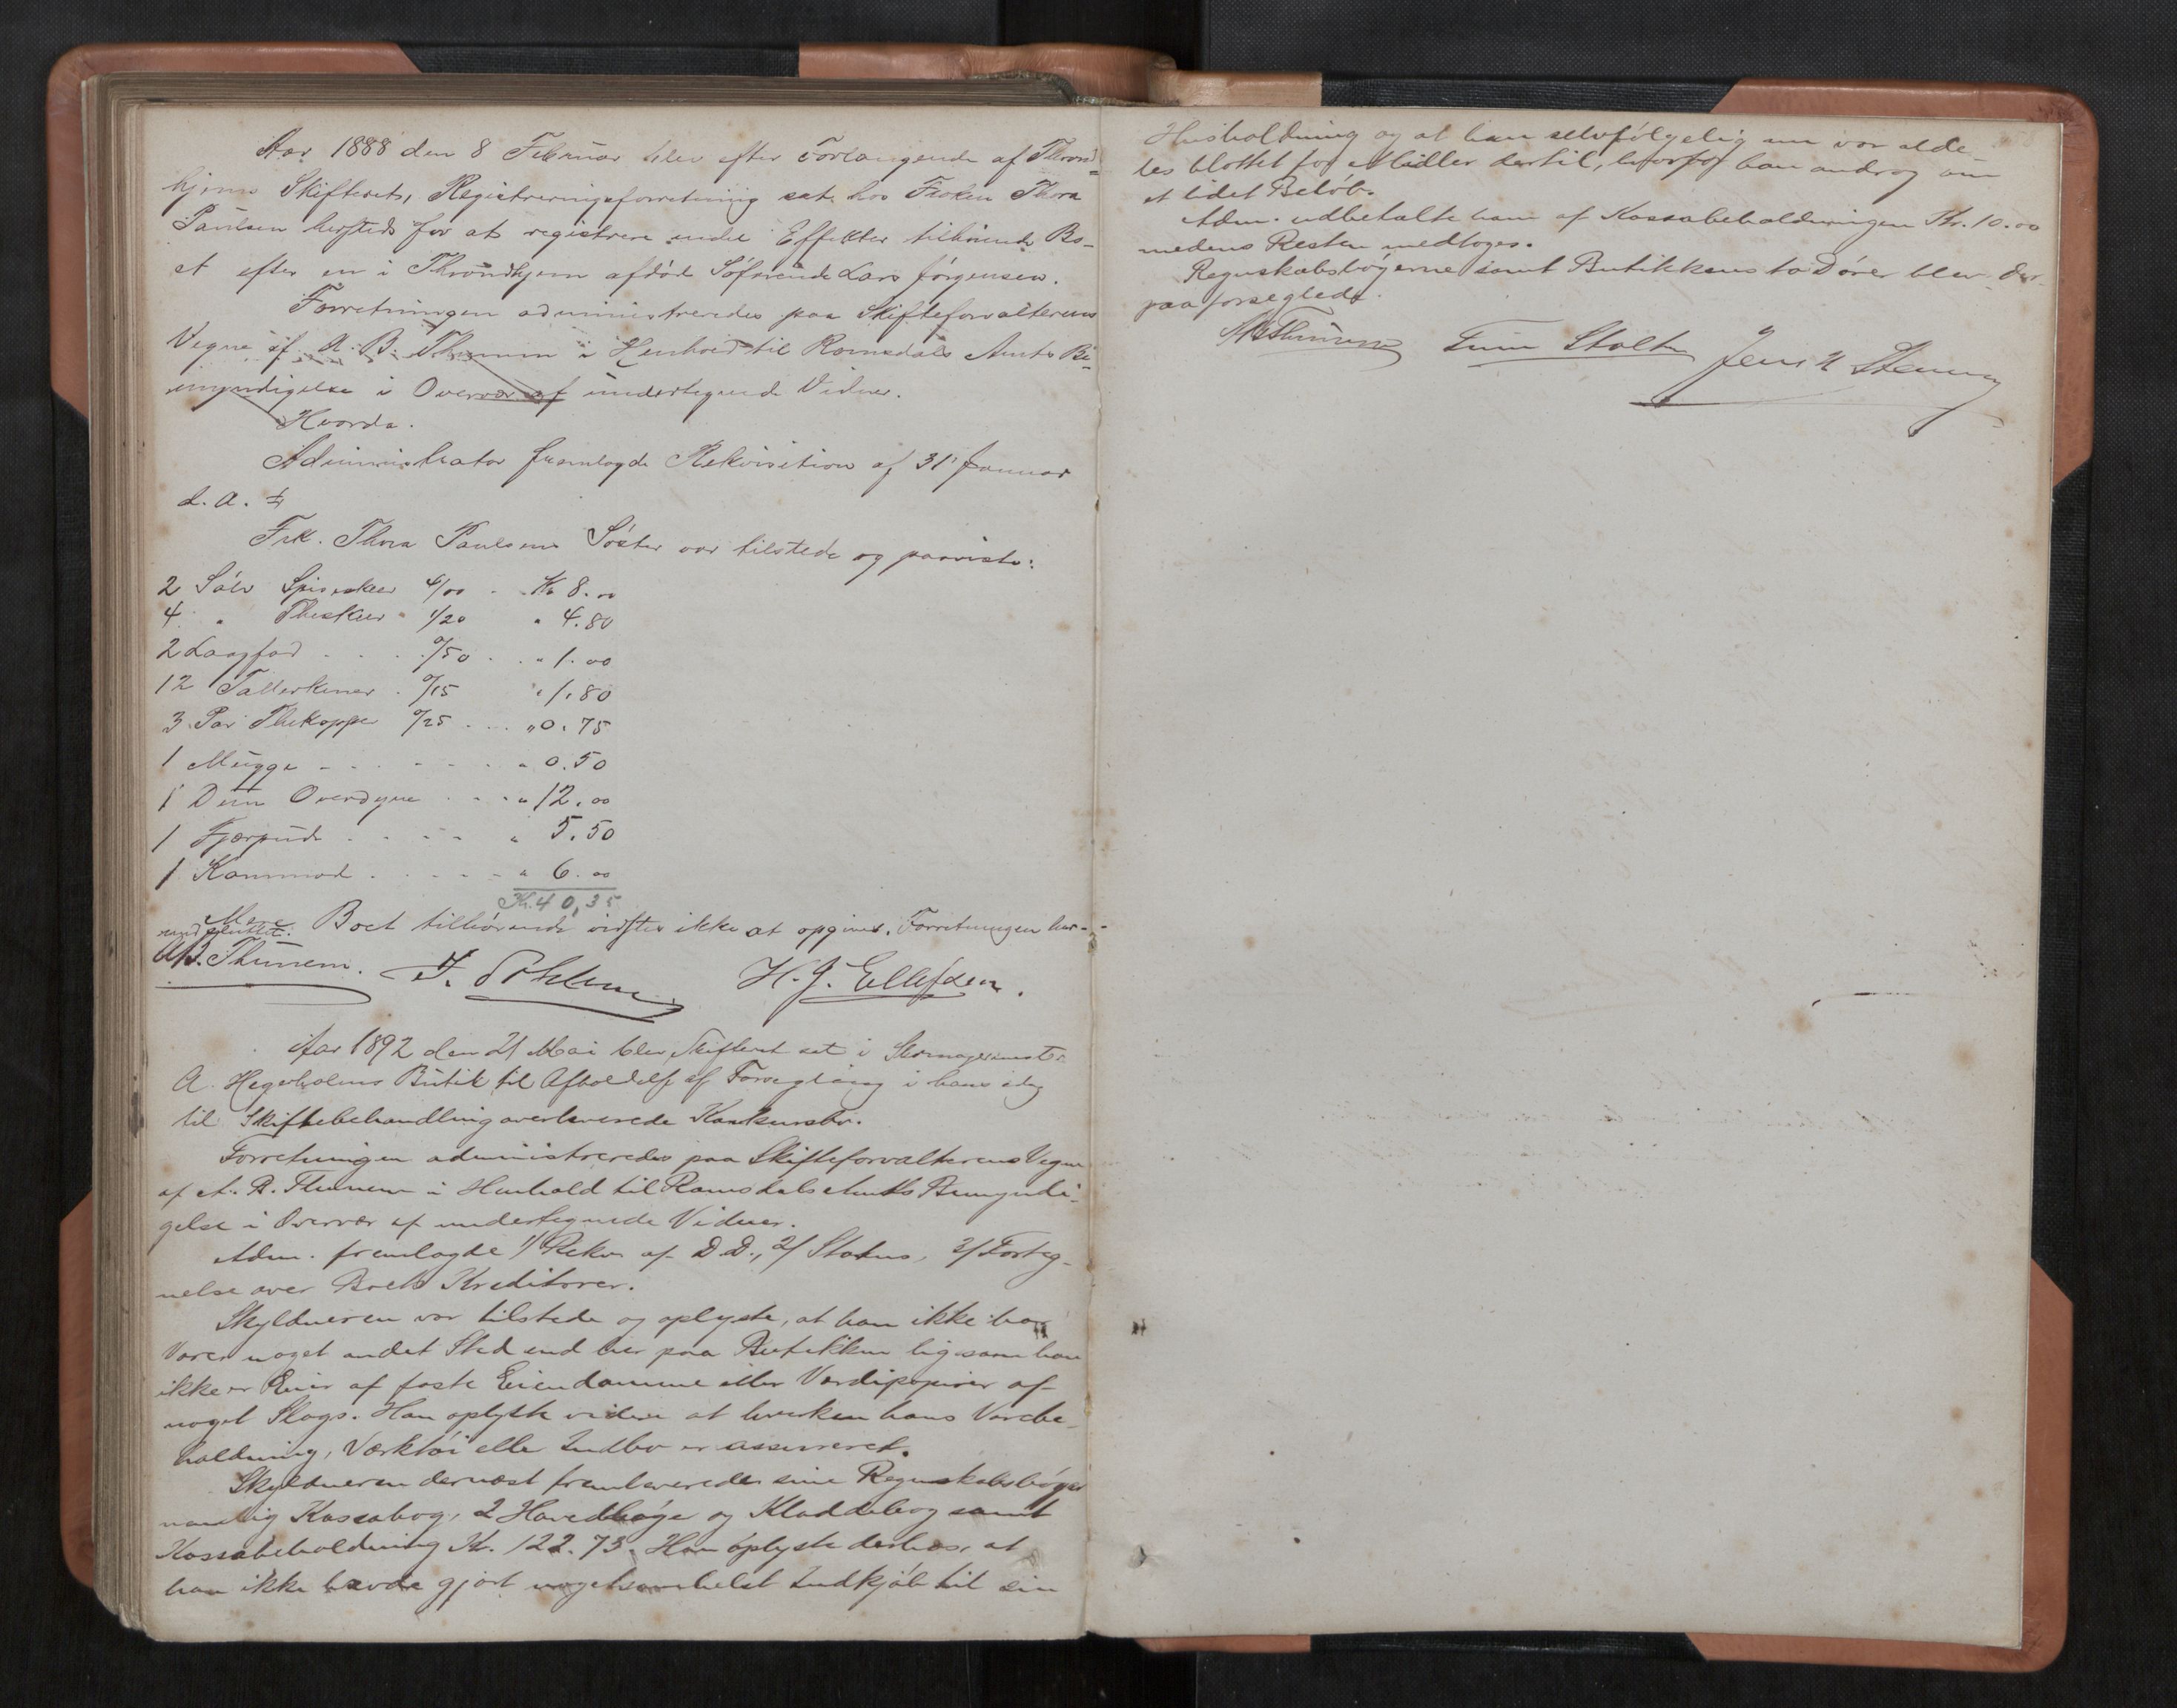 Aar 1888 den 8 Februar blev efter Forlangende af Thrond-
hjems Skifteret, Registreringsforretning sat hos Frøken Thora
Paulsen hersteds for at registrere endel Effekter tilhørende Bo-
et efter en i Throndhjem afdøde Søfriende Lars Jørgensen.
Forretningen administreredes paa Skifteforvalterens
Vegne af A. B. Thunem i Henhold til Romsdals Amts Be-
myndigelse i Overvær af undertegnede Vidner.
Hvorda.
Administrator fremlagde Rekvisition af 31' Januar
d. A.
Frk. Thora Paulsens Søster var tilstede og paaviste:
2 Sølv Spiseskeer 4/00 . Kr 8.00
4 " Theskeer " 1/20 " 4.80
2 Langfad . . . 0/50 . . " 1.00
12 Tallerkener . 0/15 " 1.80
3 Par Thekopper 0/25 . . . " 0.75
1 Mugge - - - - - - " 0.50
1 Dun Overdyne . . - " 12.00
1 Fjærpude . . - - - " 5.50
1 Kommode . . - - - " 6.00
Kr. 40,35
Mere Boet tilhørende vidstes ikke at opgives. Forretningen her-
med sluttet.
AB. Thunem. H. J. Ellefsen.
Aar 1892 den 21 Mai blev Skifteret sat i Skomagermester
A. Hegerholms Butik til Afholdelse af Forsegling i hans idag
til Skiftebehandling overleverede Konkursbo.
Forretningen administreredes paa Skifteforvalterens Vegne
af A. B. Thunem i Henhold til Romsdals Amts Bemyndi-
gelse i Overvær af undertegnede Vidner.
Adm. fremlagde 1/ Rekv. af D.D., 2/ Status, 3/ Forteg-
nelse over Boets Kreditorer.
Skyldneren var tilstede og oplyste, at han ikke har
Varer noget andet Sted end her paa Butikken ligesom han
ikke er Eier af faste Eiendomme eller Værdipapirer af
noget Slags. Han oplyste videre at hverken hans Varebe-
holdning, Værktøi eller Indbo er assureret.
Skyldneren dernæst fremleverede sine Regnskabsbøger
nemlig Kassabog, 2 Hovedbøger og Kladdebog samt
Kassabeholdning Kr. 122.73. Han oplyste derhos, at
han ikke havde gjort nogetsomhelst Indkjøb til sin
Husholdning og at han selvfølgelig nu var alde-
les blottet for Midler dertil, hvorfor han androg om
et lidet Beløb.
Adm. udbetalte ham af Kassabeholdningen Kr. 10.00
medens Resten medtoges.
Regnskabsbøgerne samt Butikkens to Døre blev der-
paa forseglede.
AB Thunem Jens